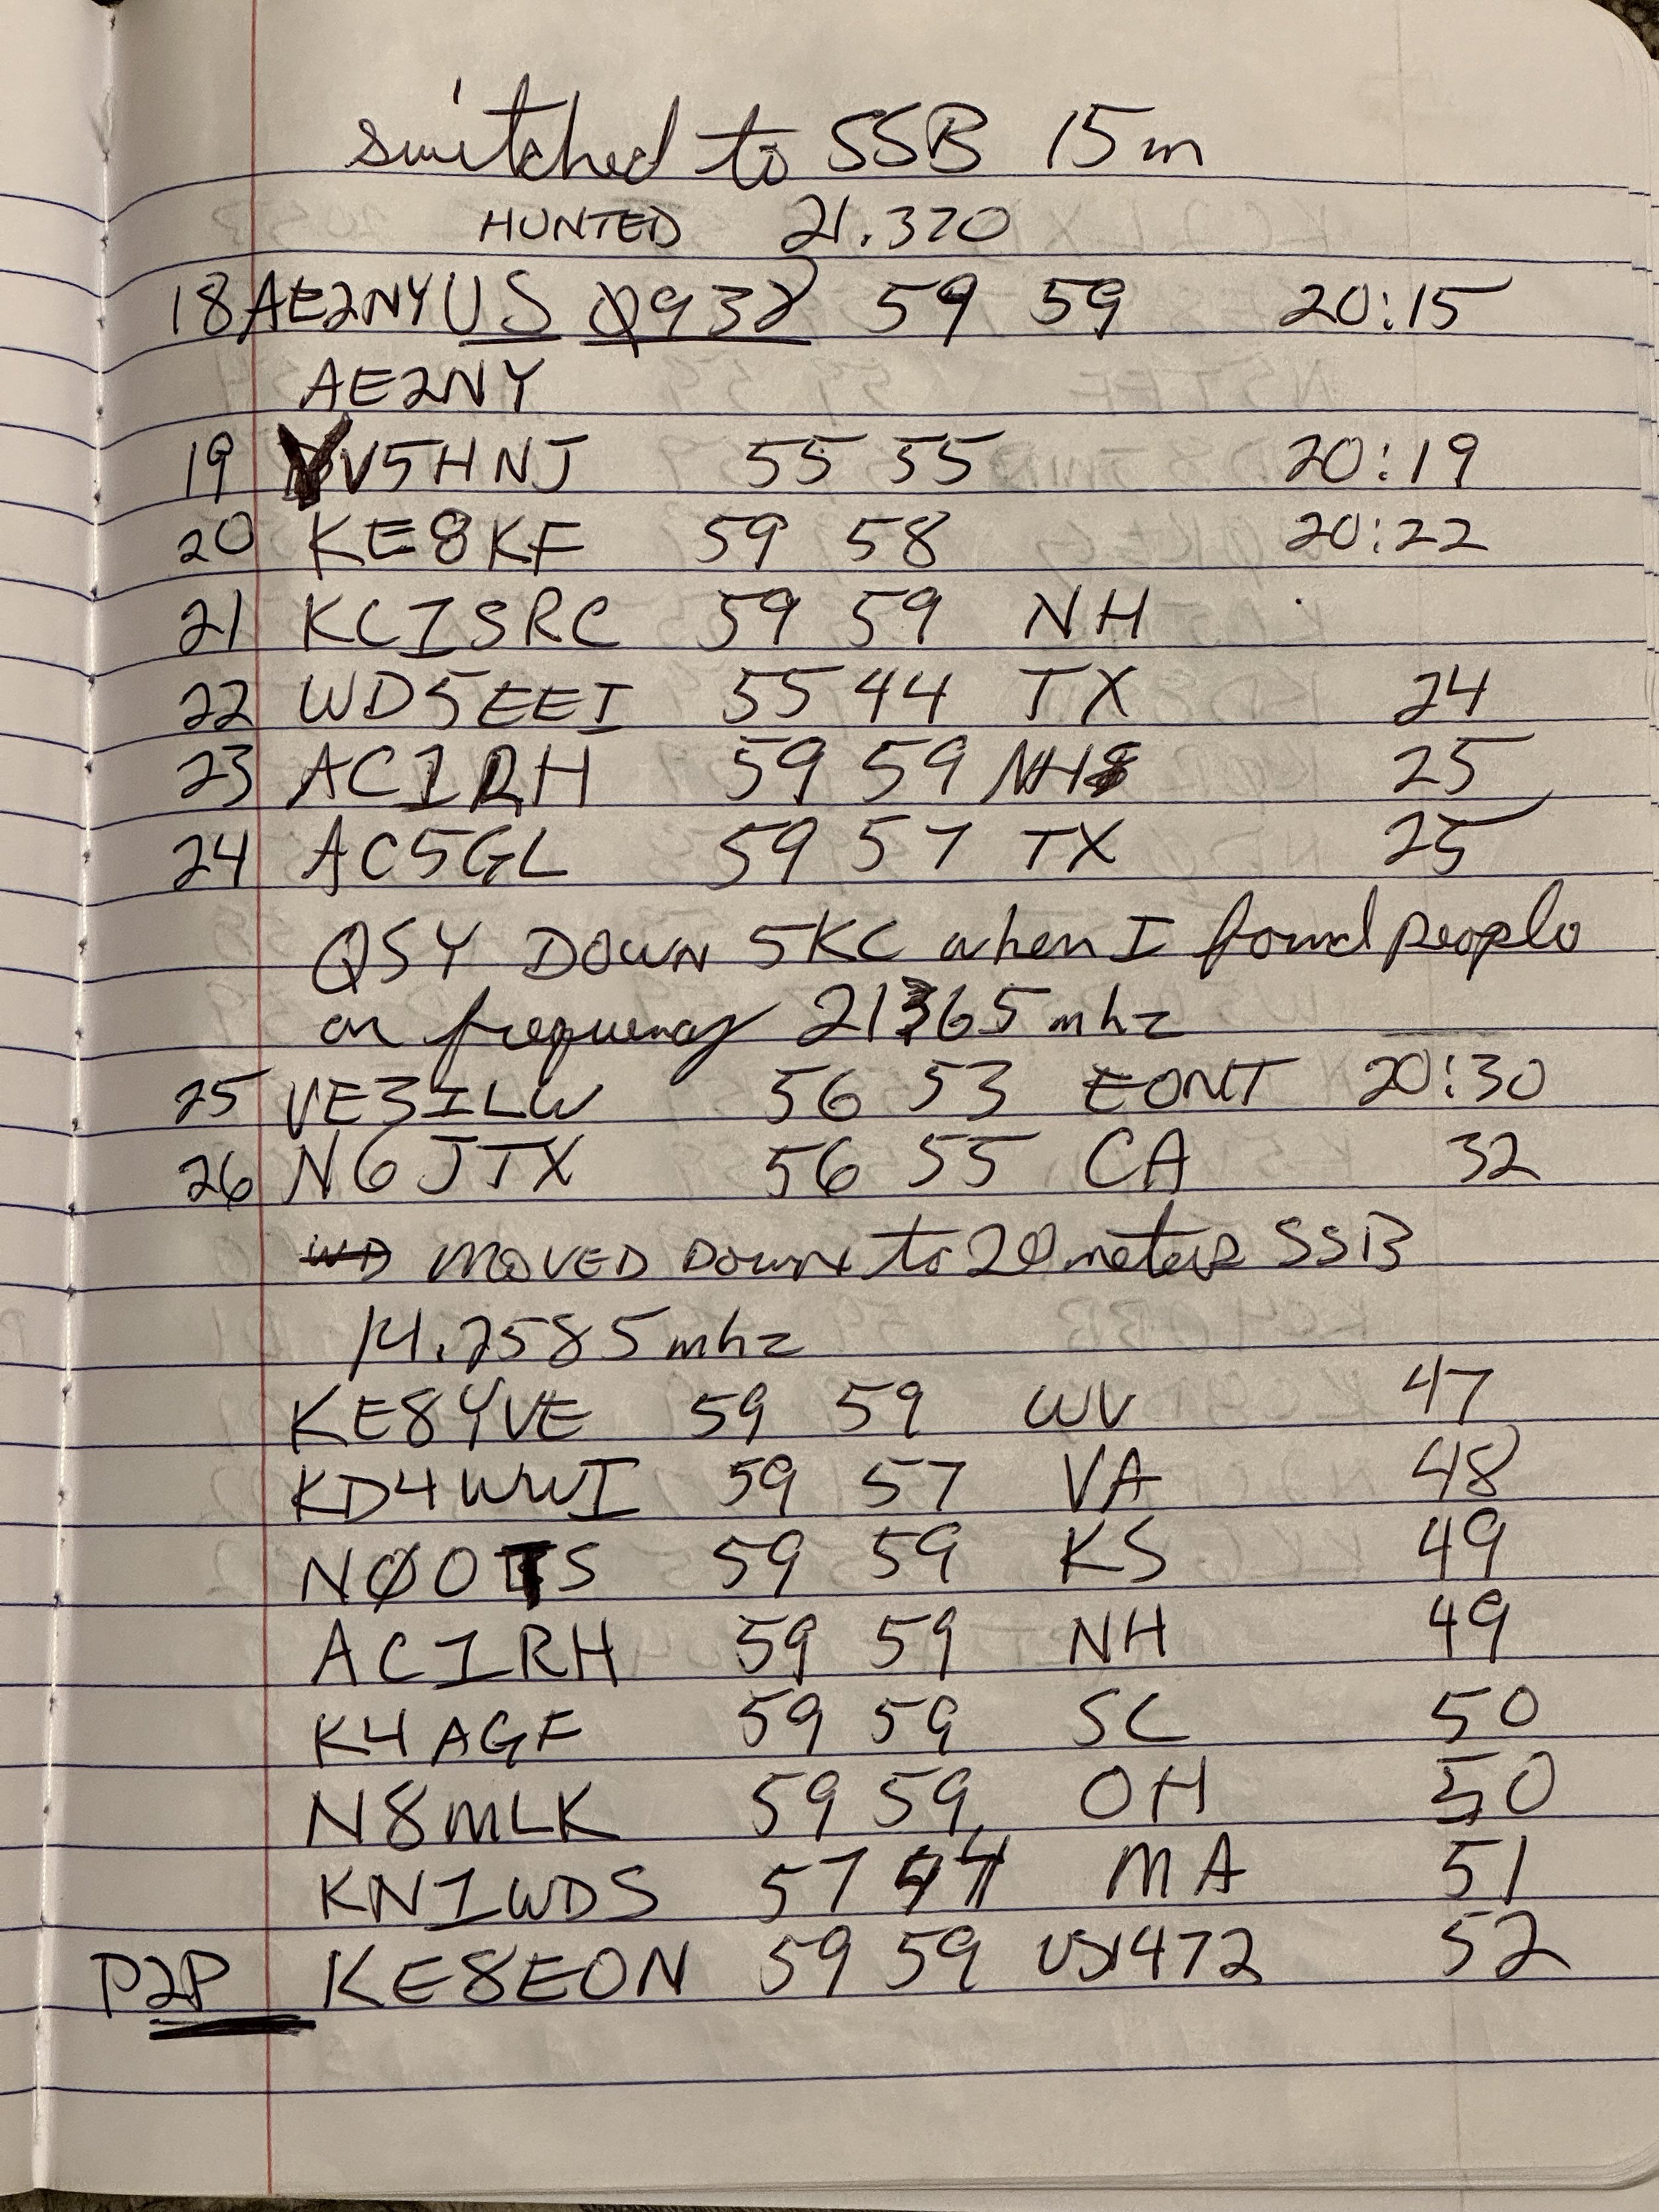 switched to SSB 15m
HUNTED 21.320
18 AE2NY US 0932 59 59 20:15
AE2NY
19 VV5HNJ 55 55 20:19
20 KE8KF 59 58 20:22
21 KC1SRC 59 59 NH
22 WD5EEI 55 44 TX 24
23 AC1RH 59 59 NH 25
24 AC5GL 59 57 TX 25
QSY DOWN 5KC when I found people
on frequency 21365 mhz
25 VE3ILW 56 53 EONT 20:30
26 N6JTX 56 55 CA 32
WD MOVED DOWN to 20 meters SSB
14.2585 mhz
KE8YVE 59 59 WV 47
KD4WWI 59 57 VA 48
NØOTS 59 59 KS 49
AC1RH 59 59 NH 49
K4AGF 59 59 SC 50
N8MLK 59 59 OH 50
KN1WDS 57 44 MA 51
P2P KE8EON 59 59 US1472 52